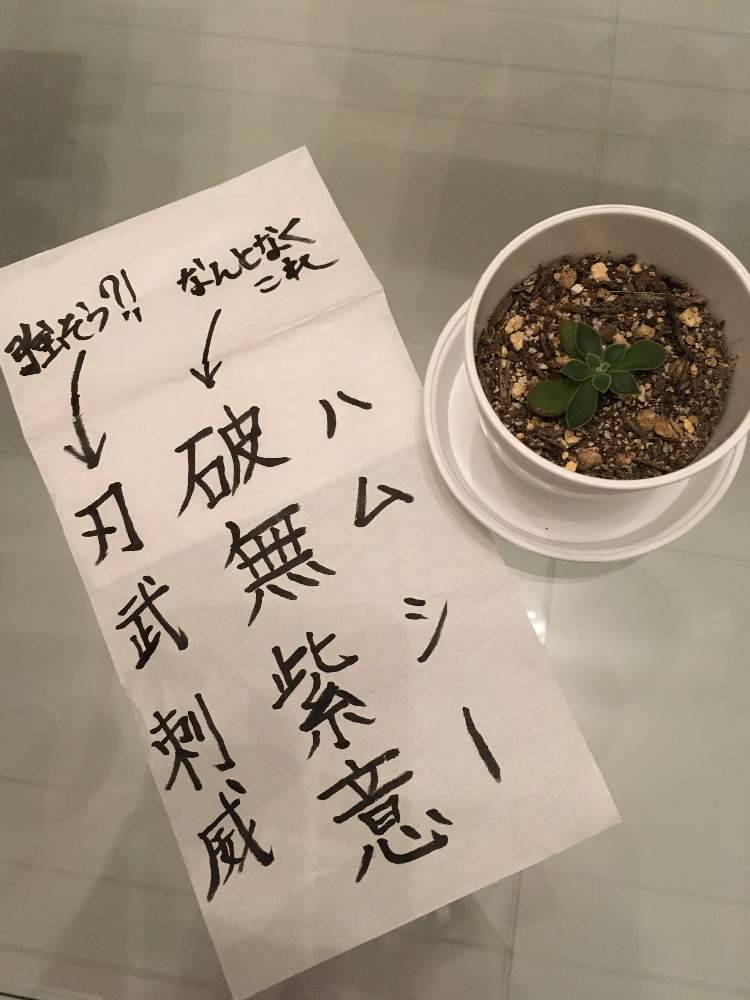 ハムシー
なんとなく
これ
破無紫意
強そう?!!
刃武刺威